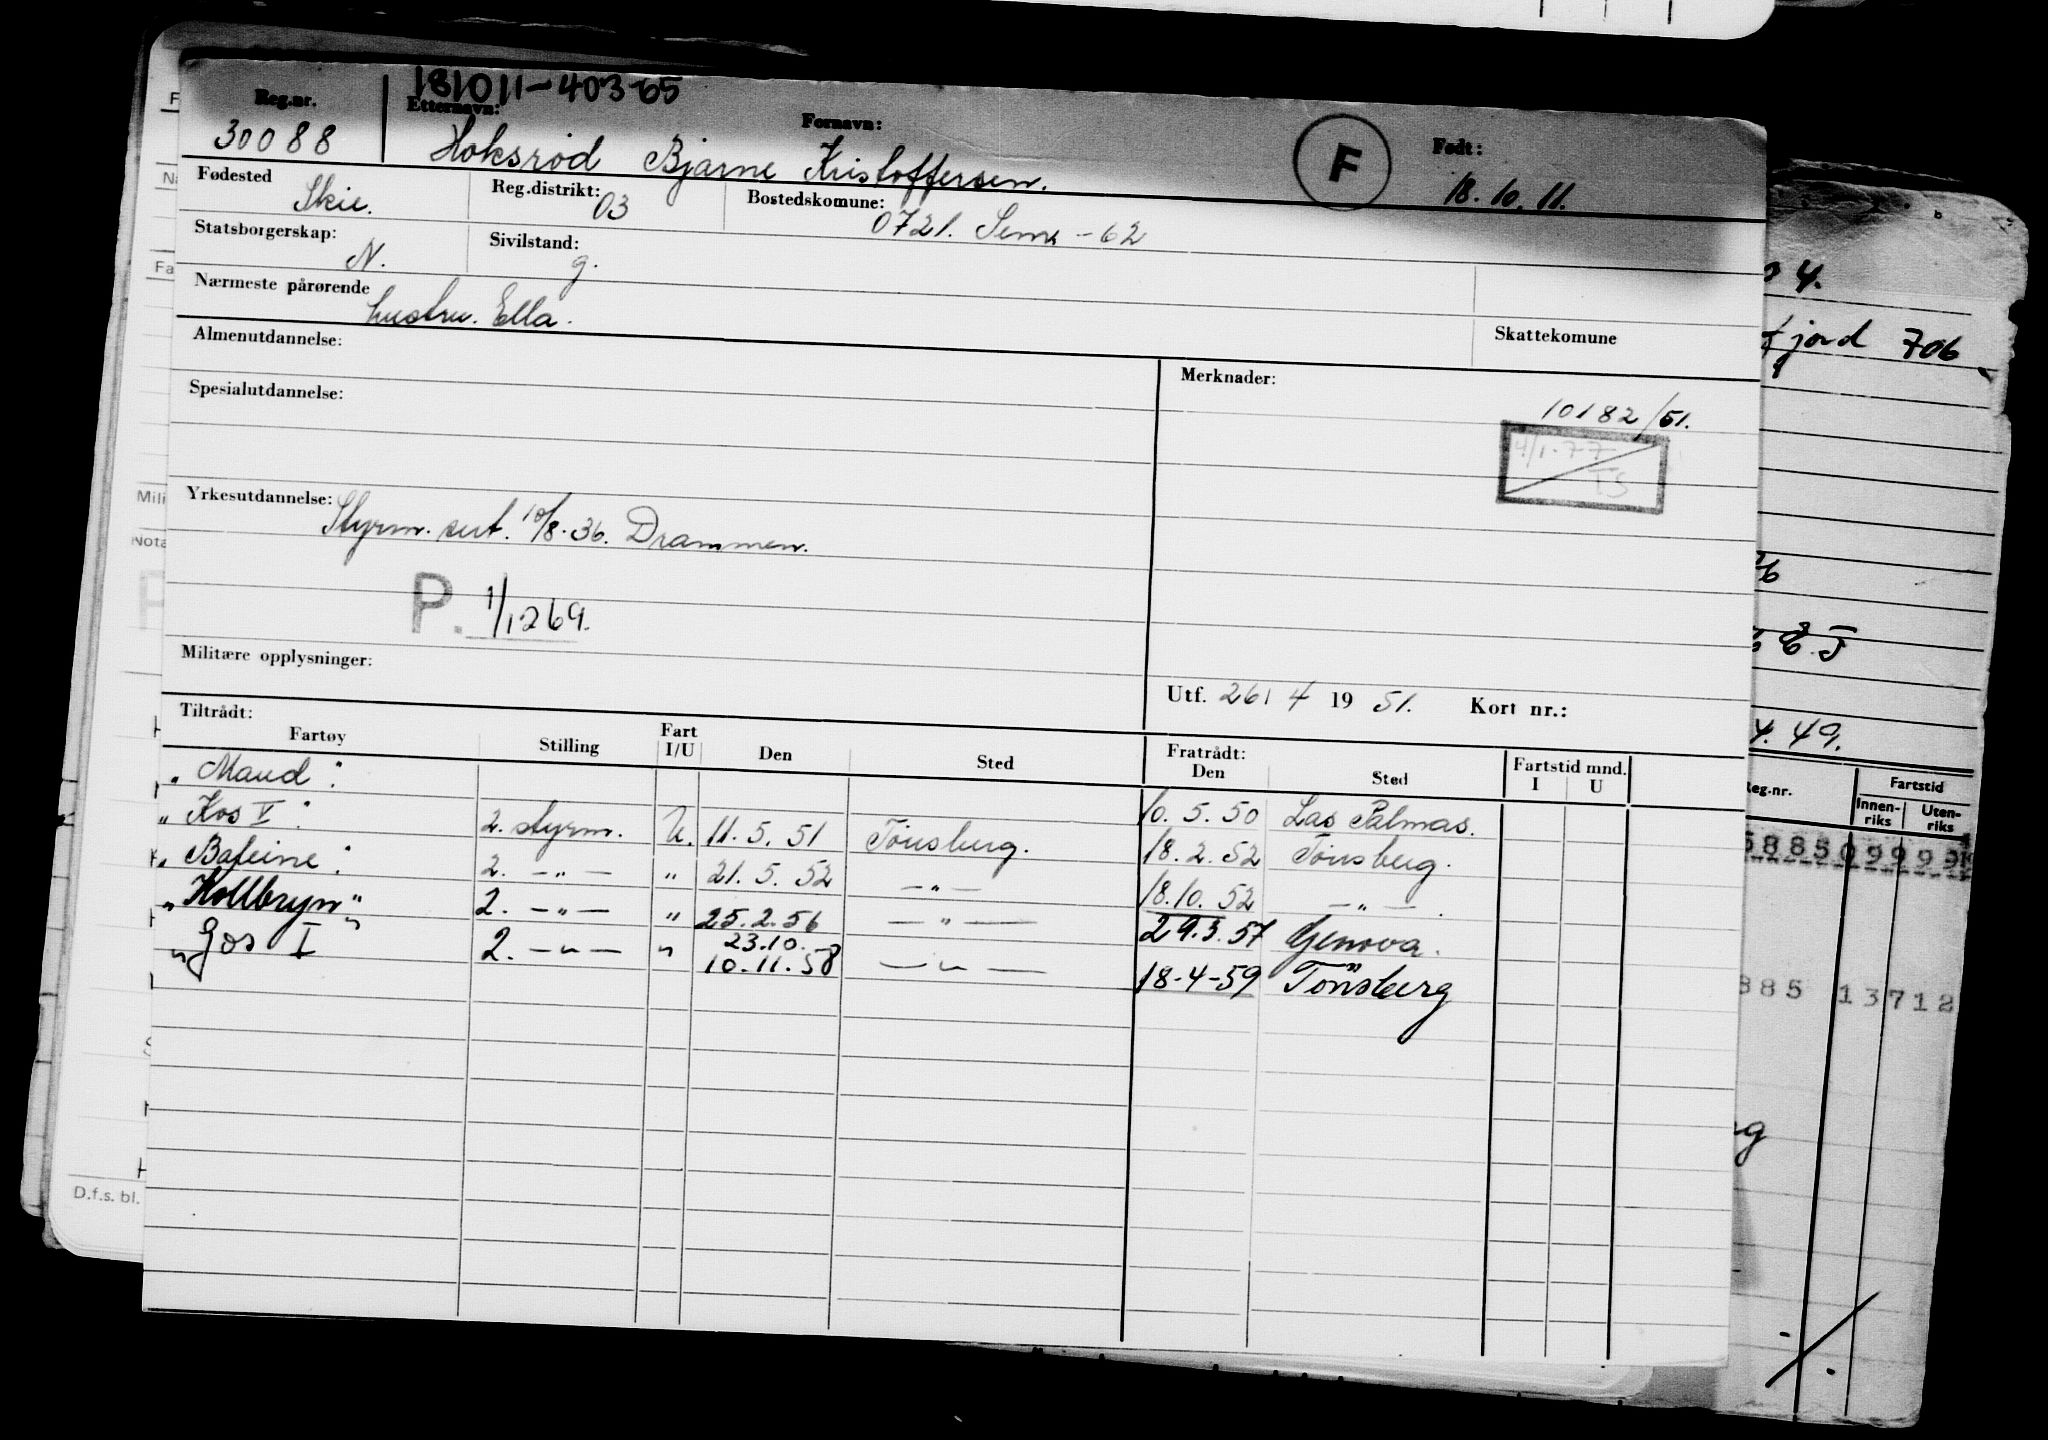 181011-403-65
Reg.nr. Etternavn: Fornavn: Født:
30088 Hoksrød Bjarne Kristoffersen. F 18.10.11.
Fødested Skie. Reg.distrikt: 03 Bostedskomune: 0721. Sem -62
Statsborgerskap: N. Sivilstand: g.
Nærmeste pårørende hustru. Ella.
Almenutdannelse: Skattekomune
Merknader:
Spesialutdannelse: 10182/51.
4/1-77
TS
Yrkesutdannelse: Styrm. sert. 10/8-36. Drammen.
P. 1/1269.
Militære opplysninger:
Utf. 26/4 19 51. Kort nr.:
Tiltrådt: Fratrådt:
Fartøy Stilling Fart I/U Den Sted Den Sted Fartstid mnd. I U
"Maud": 10.5.50 Las Palmas.
"Kos V": 2. styrm. U. 11.5.51 Tönsberg. 18.2.52 Tönsberg.
"Baleine": 2. -"- " 21.5.52 -"- 18.10.52 -"-.
"Hollbryn" 2. -"- " 25.2.56 -"- 29.3.57 Genova.
23.10.
"Gos I" 2. -"- " 10.11.58 -"- 18-4-59 Tönsberg
4.
fjord 706
4.49.
Reg.nr. Fartstid
Innen-riks Uten-riks
885 13712
D.f.s. bl.